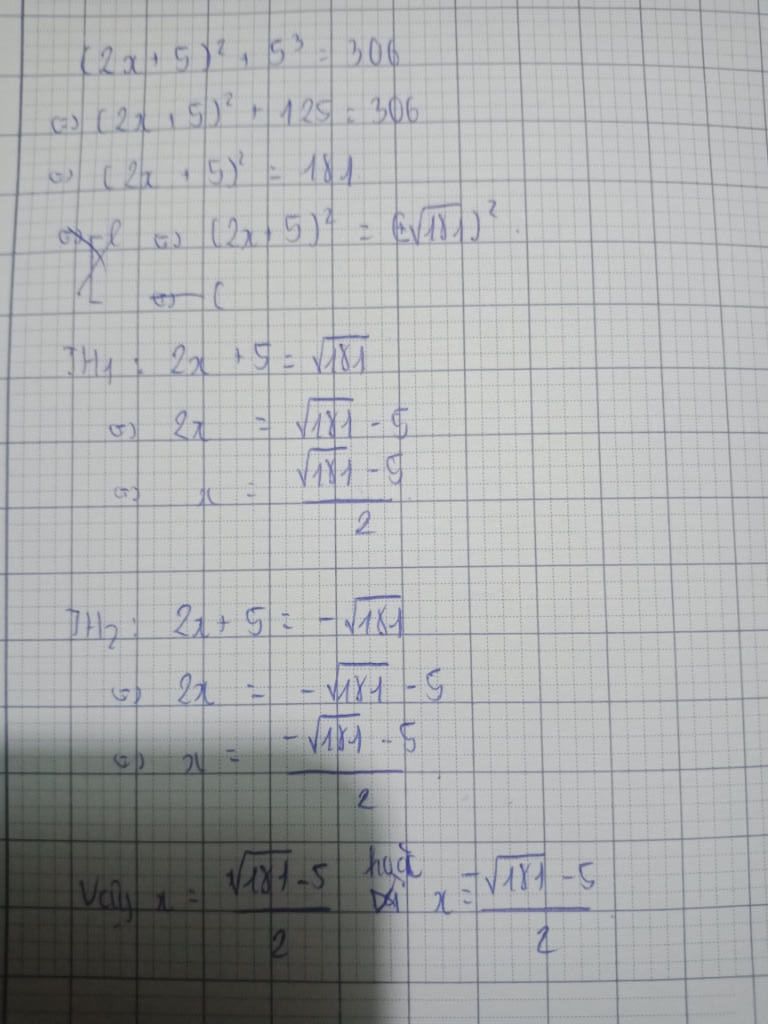 (2x + 5)² + 5³ = 306
⇔ (2x + 5)² + 125 = 306
⇔ (2x + 5)² = 181
⇔ (2x + 5)² = (±√181)²
⇔ (
TH1 : 2x + 5 = √181
⇔ 2x = √181 - 5
⇔ x = (√181 - 5)/2
TH2 : 2x + 5 = -√181
⇔ 2x = -√181 - 5
⇔ x = (-√181 - 5)/2
Vậy x = (√181 - 5)/2 hoặc x = (-√181 - 5)/2